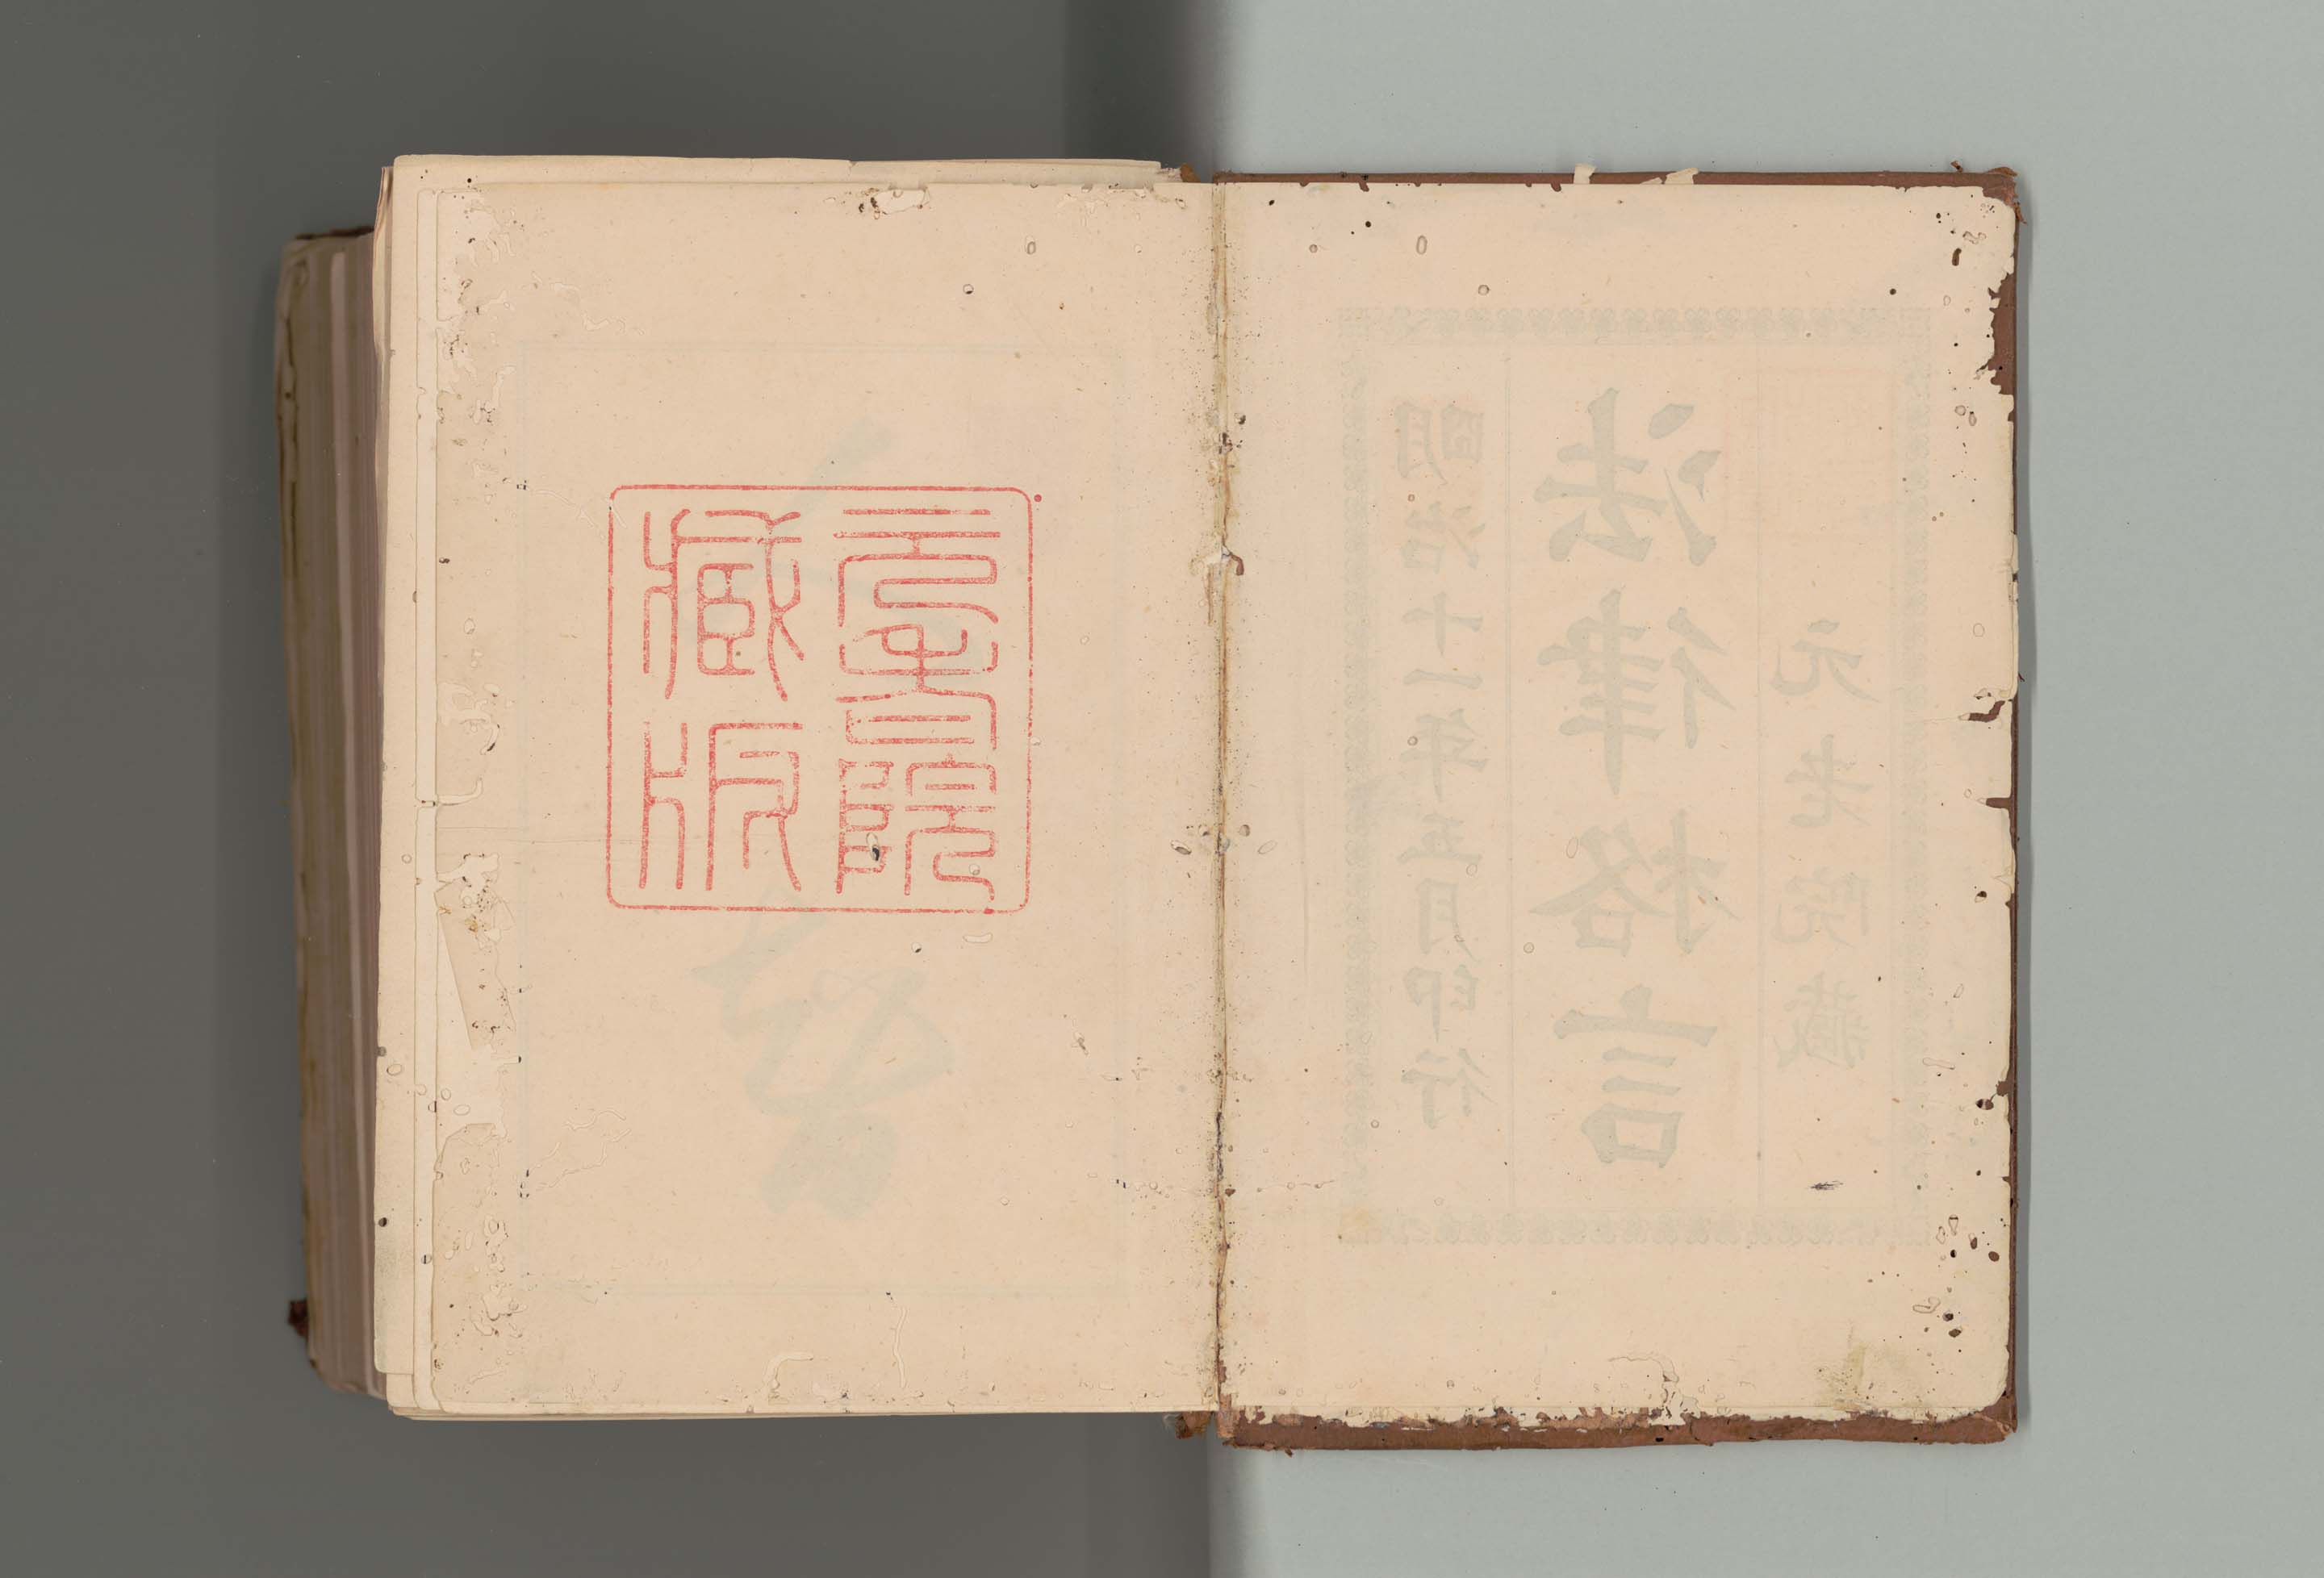 元老院藏
法律格言
明治十一年五月印行
元老院
藏版